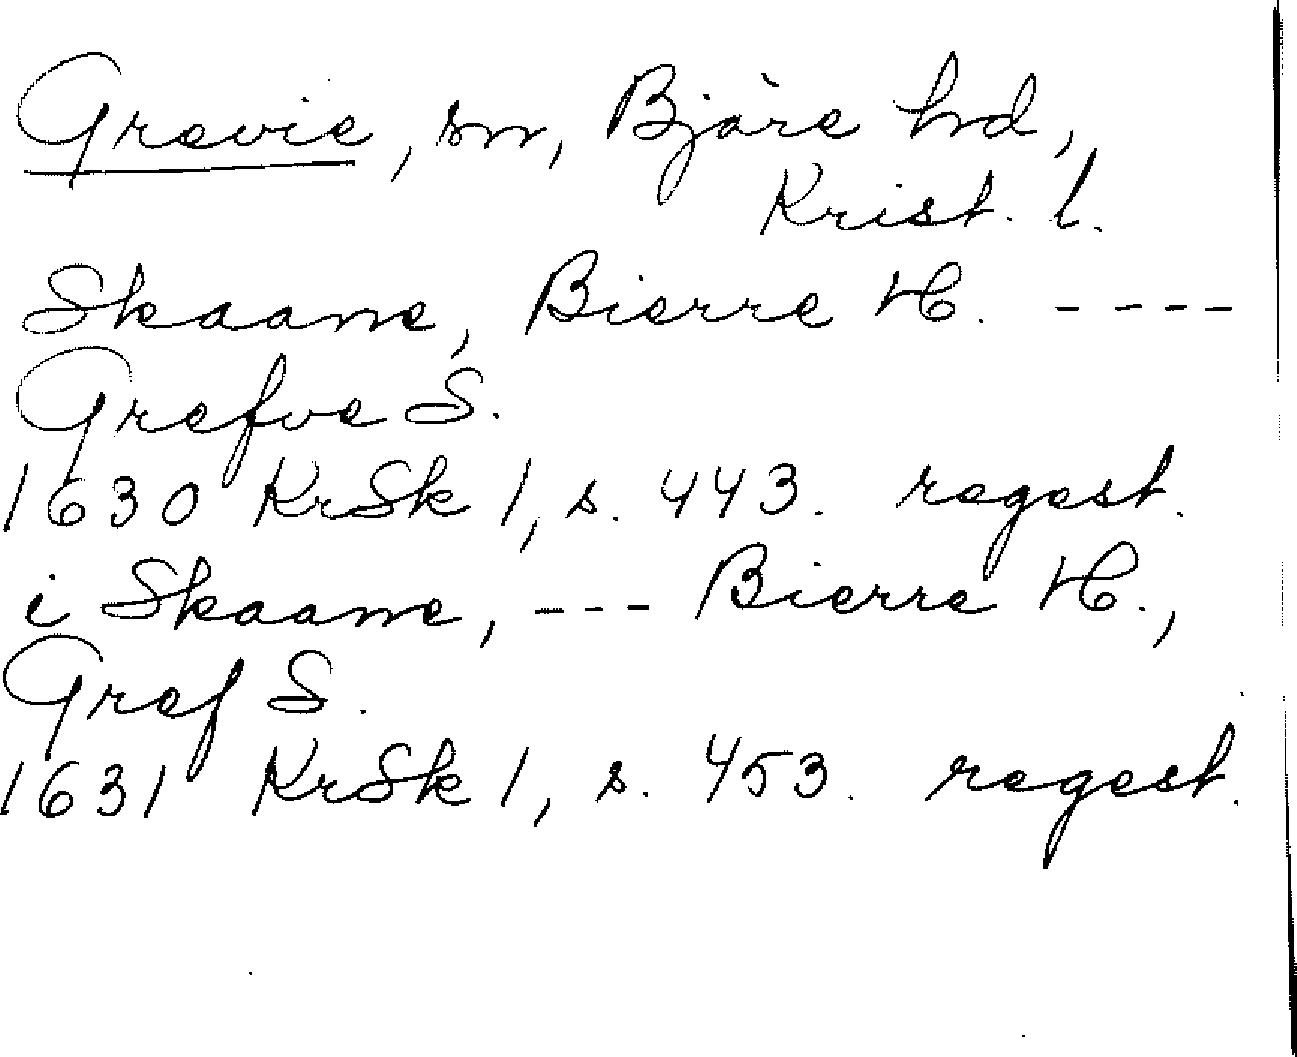 Grevie, sn, Bjäre hd,
Krist. l.
Skaane, Bierre H. ----
Grefve S.
1630 KrSk 1, s. 443. regest.
i Skaane, --- Bierre H.,
Gref S.
1631 KrSk 1, s. 453. regest.